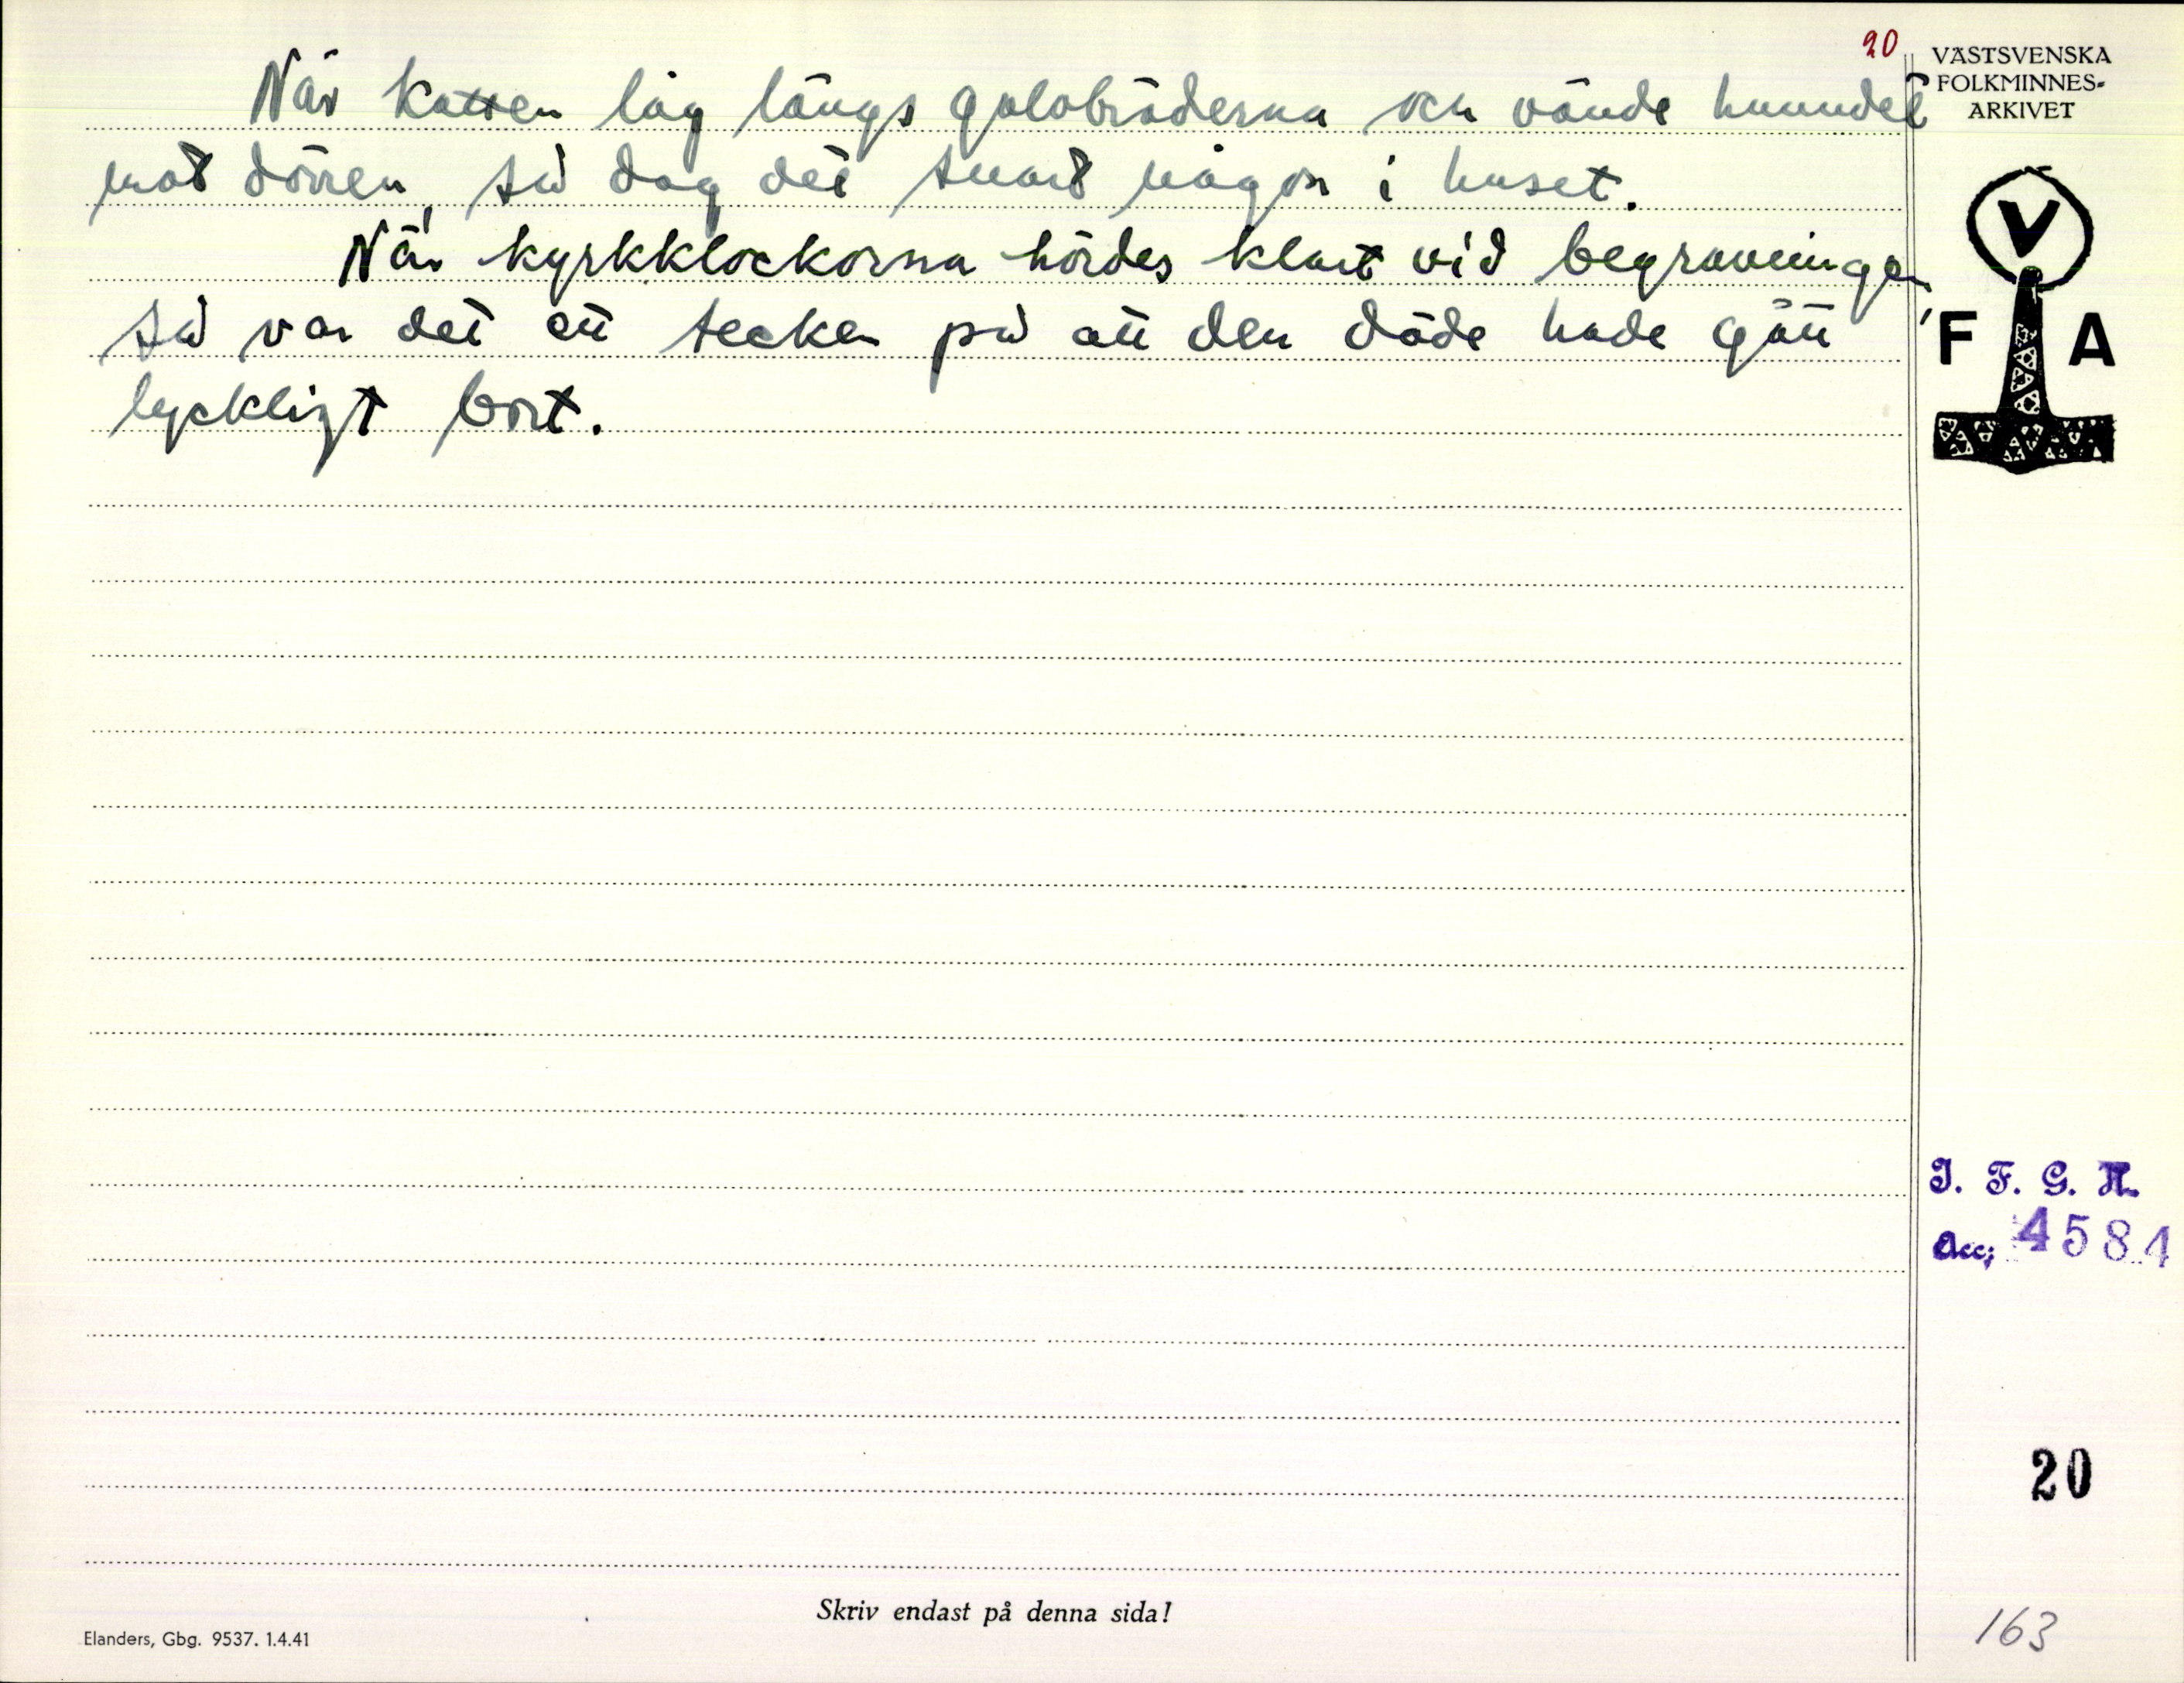 20
När katten låg längs golvbräderna och vände huvudet
mot dörren, så dog det snart någon i huset.
När kyrkklockorna hördes klart vid begravningen,
så var det ett tecken på att den döde hade gått
lyckligt bort.
VÄSTSVENSKA
FOLKMINNES-
ARKIVET
V
F A
I. F. G. H.
Acc; 4581
20
163
Skriv endast på denna sida!
Elanders, Gbg. 9537. 1.4.41